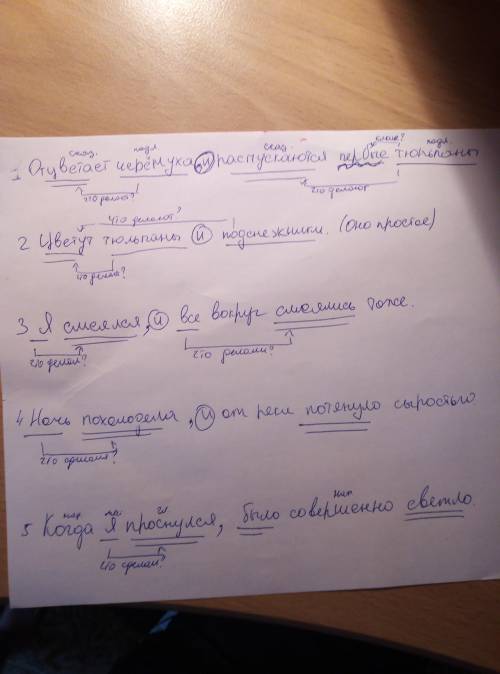 сказ. подл. сказ. какие? подл.
1 Отцветает черёмуха, и распускаются первые тюльпаны
что делает? что делают
что делают?
2 Цветут тюльпаны и подснежники. (оно простое)
что делают?
3 Я смеялся, и все вокруг смеялись тоже.
что делал? что делали?
4 Ночь похолодела, и от реки потянуло сыростью
что сделала?
нар. гл нар
5 Когда я проснулся, было совершенно светло.
что сделал?